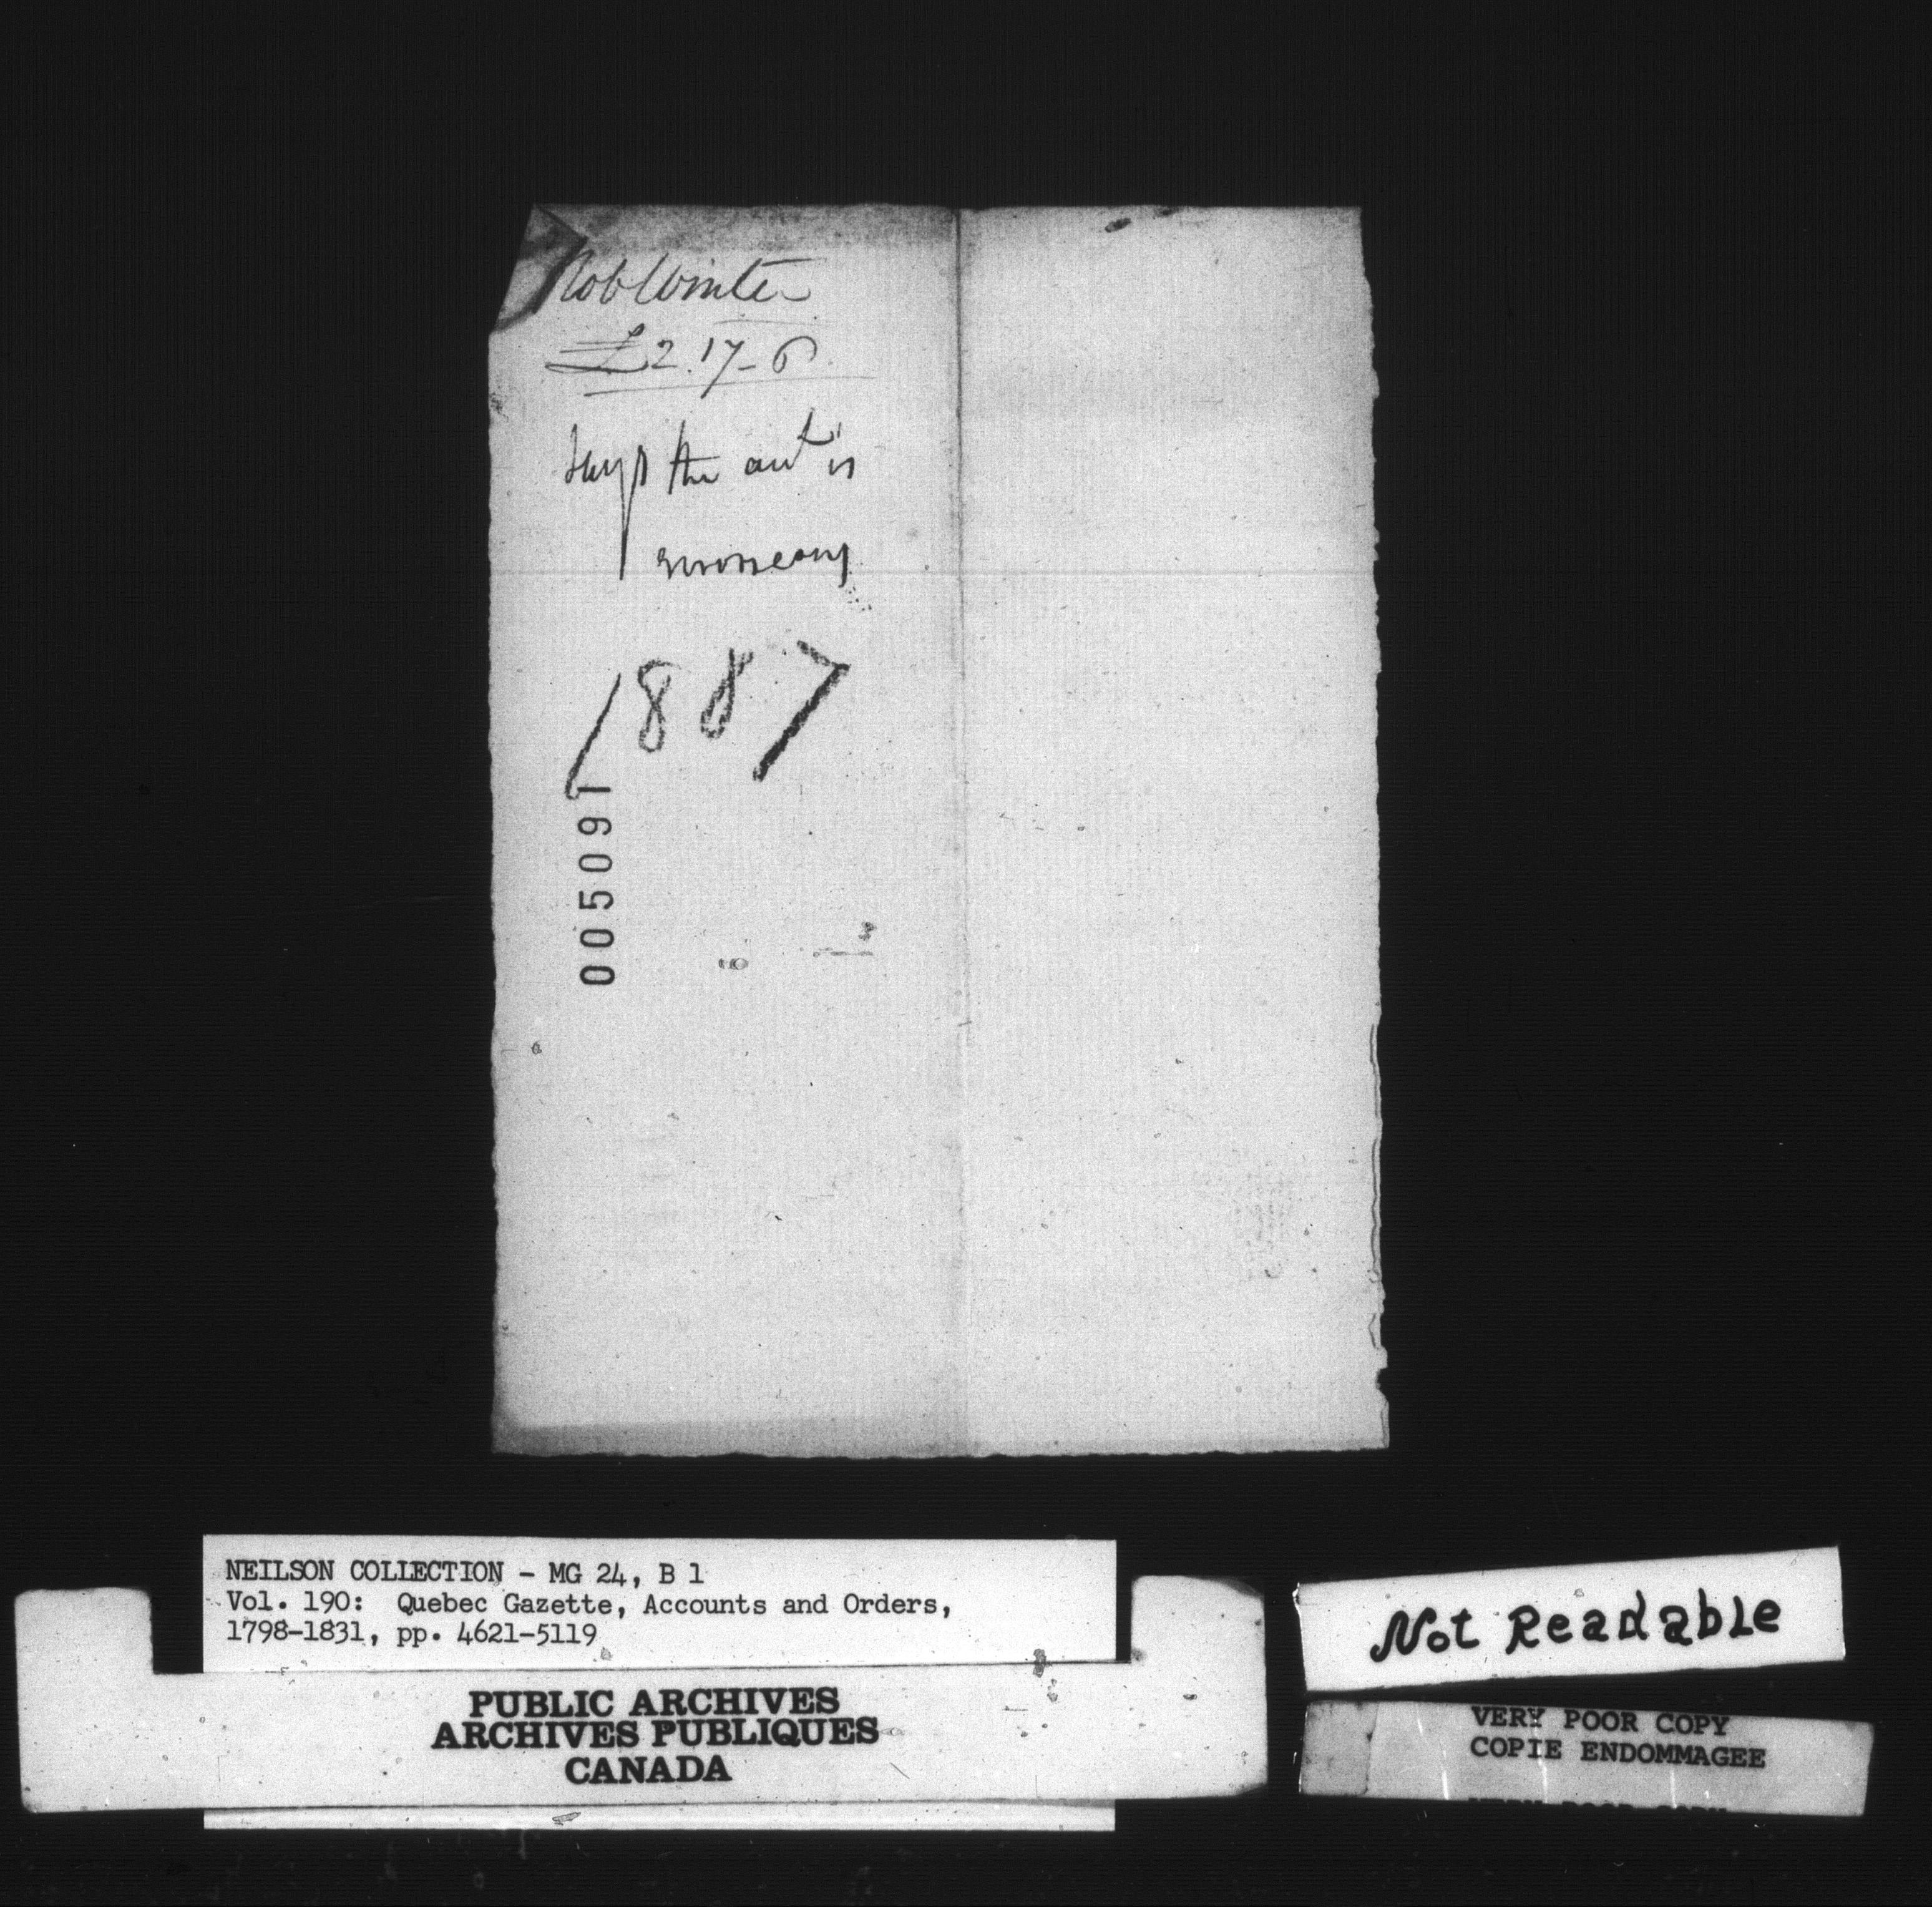 Rob Winter
£2.17-6
says the acct is
erroneous
1887
005091
NEILSON COLLECTION - MG 24, B 1
Vol. 190: Quebec Gazette, Accounts and Orders,
1798-1831, pp. 4621-5119
PUBLIC ARCHIVES
ARCHIVES PUBLIQUES
CANADA
Not Readable
VERY POOR COPY
COPIE ENDOMMAGEE